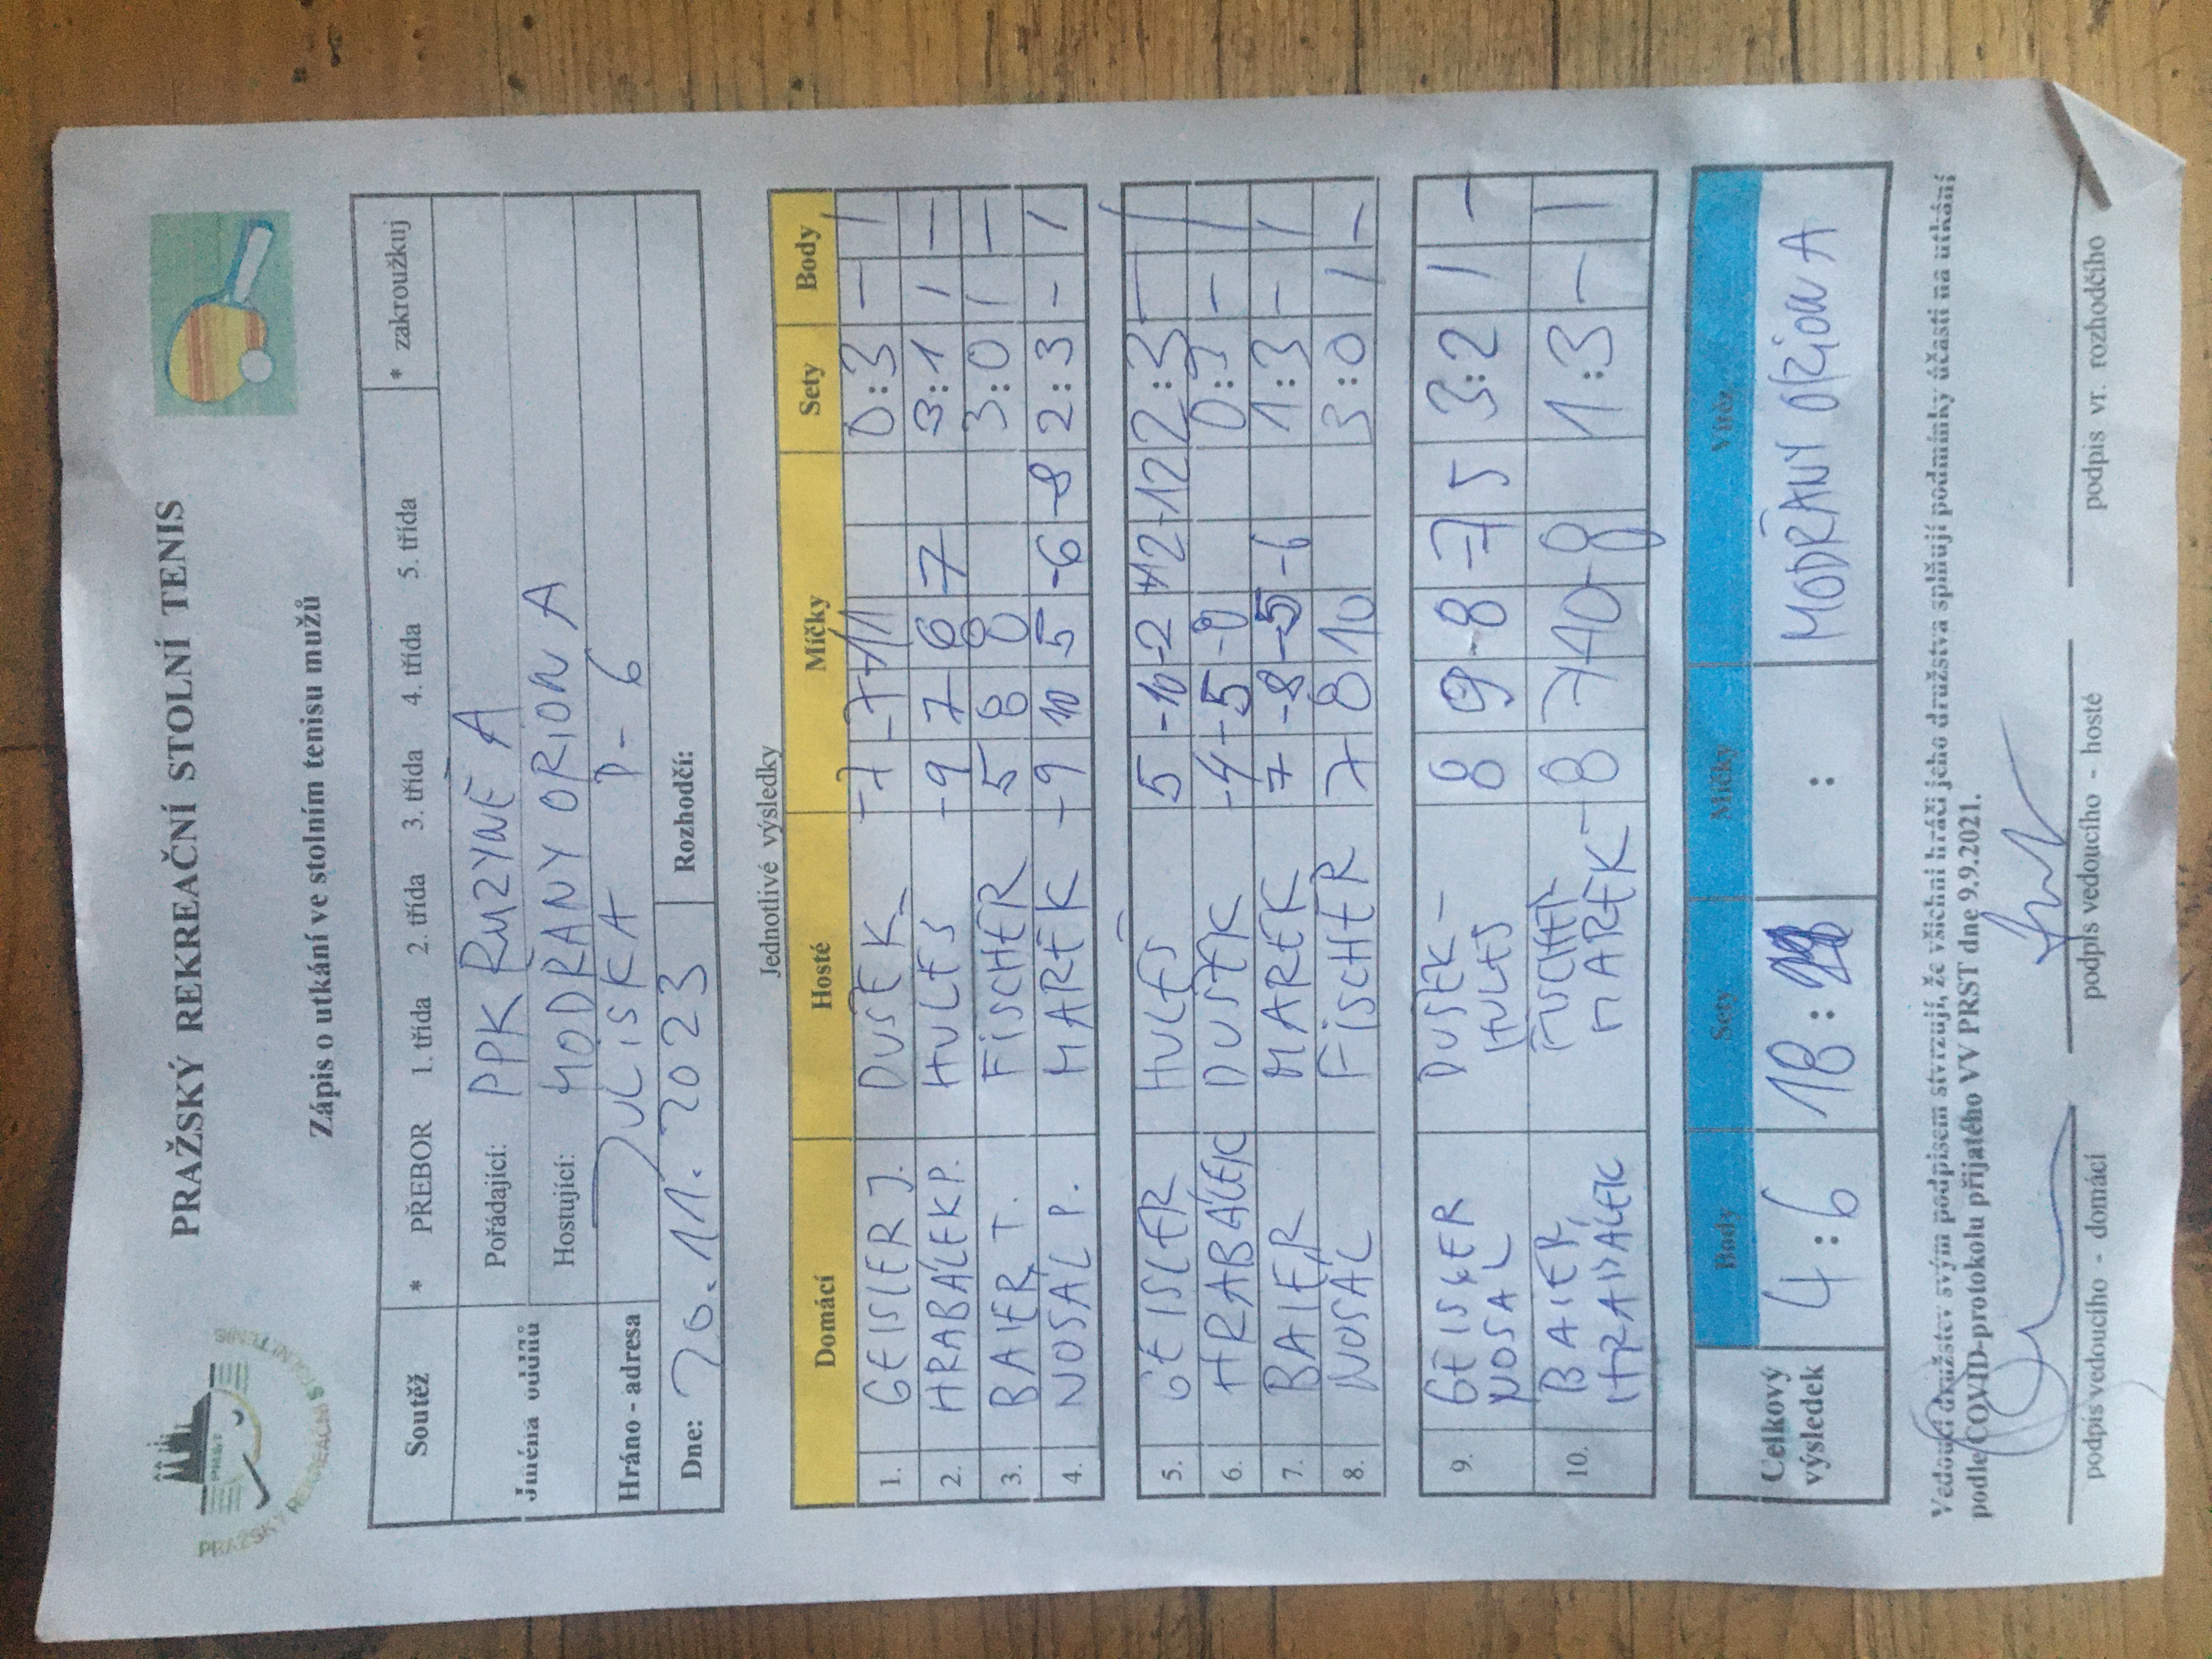 PRAŽSKÝ REKREAČNÍ STOLNÍ TENIS
Zápis o utkání ve stolním tenisu mužů
PRAŽSKÝ REKREAČNÍ STOLNÍ TENIS
Soutěž * PŘEBOR 1. třída 2. třída 3. třída 4. třída 5. třída * zakroužkuj
Jména oddílů Pořádající: PPK RUZYNĚ A
Hostující: MODŘANY ORION A
Hráno - adresa JULISKA P-6
Dne: 20.11.2023 Rozhodčí:
Jednotlivé výsledky
Domácí Hosté Míčky Sety Body
1. GEISLER J. DUŠEK -7 -7 -11 0:3 - 1
2. HRABÁLEK P. HULEŠ -9 7 6 7 3:1 1 -
3. BAIER T. FISCHER 5 8 8 3:0 1 -
4. NOSÁL P. MAREK -9 10 5 -6 -8 2:3 - 1
5. GEISLER HULEŠ 5 -10 -2 12 -12 2:3 - 1
6. HRABÁLEK DUŠEK -4 -5 -8 0:3 - 1
7. BAIER MAREK 7 -8 -5 -6 1:3 - 1
8. NOSÁL FISCHER 7 8 10 3:0 1 -
9. GEISLER NOSAL DUŠEK - HULEŠ 8 9 -8 -7 5 3:2 1 -
10. BAIER, HRABÁLEK FISCHER - MAREK -8 7 -10 -8 1:3 - 1
Celkový výsledek Body Sety Míčky Vítěz
4:6 18: : MODŘANY ORION A
Vedoucí družstev svým podpisem stvrzují, že všichni hráči jeho družstva splňují podmínky účasti na utkání
podle COVID-protokolu přijatého VV PRST dne 9.9.2021.
podpis vedoucího - domácí podpis vedoucího - hosté podpis vr. rozhodčího